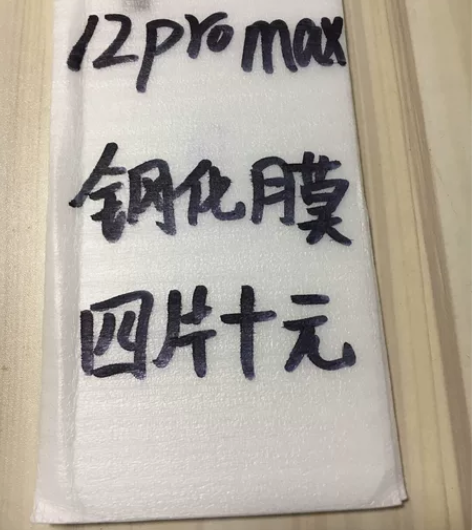 12pro max
钢化膜
四片十元